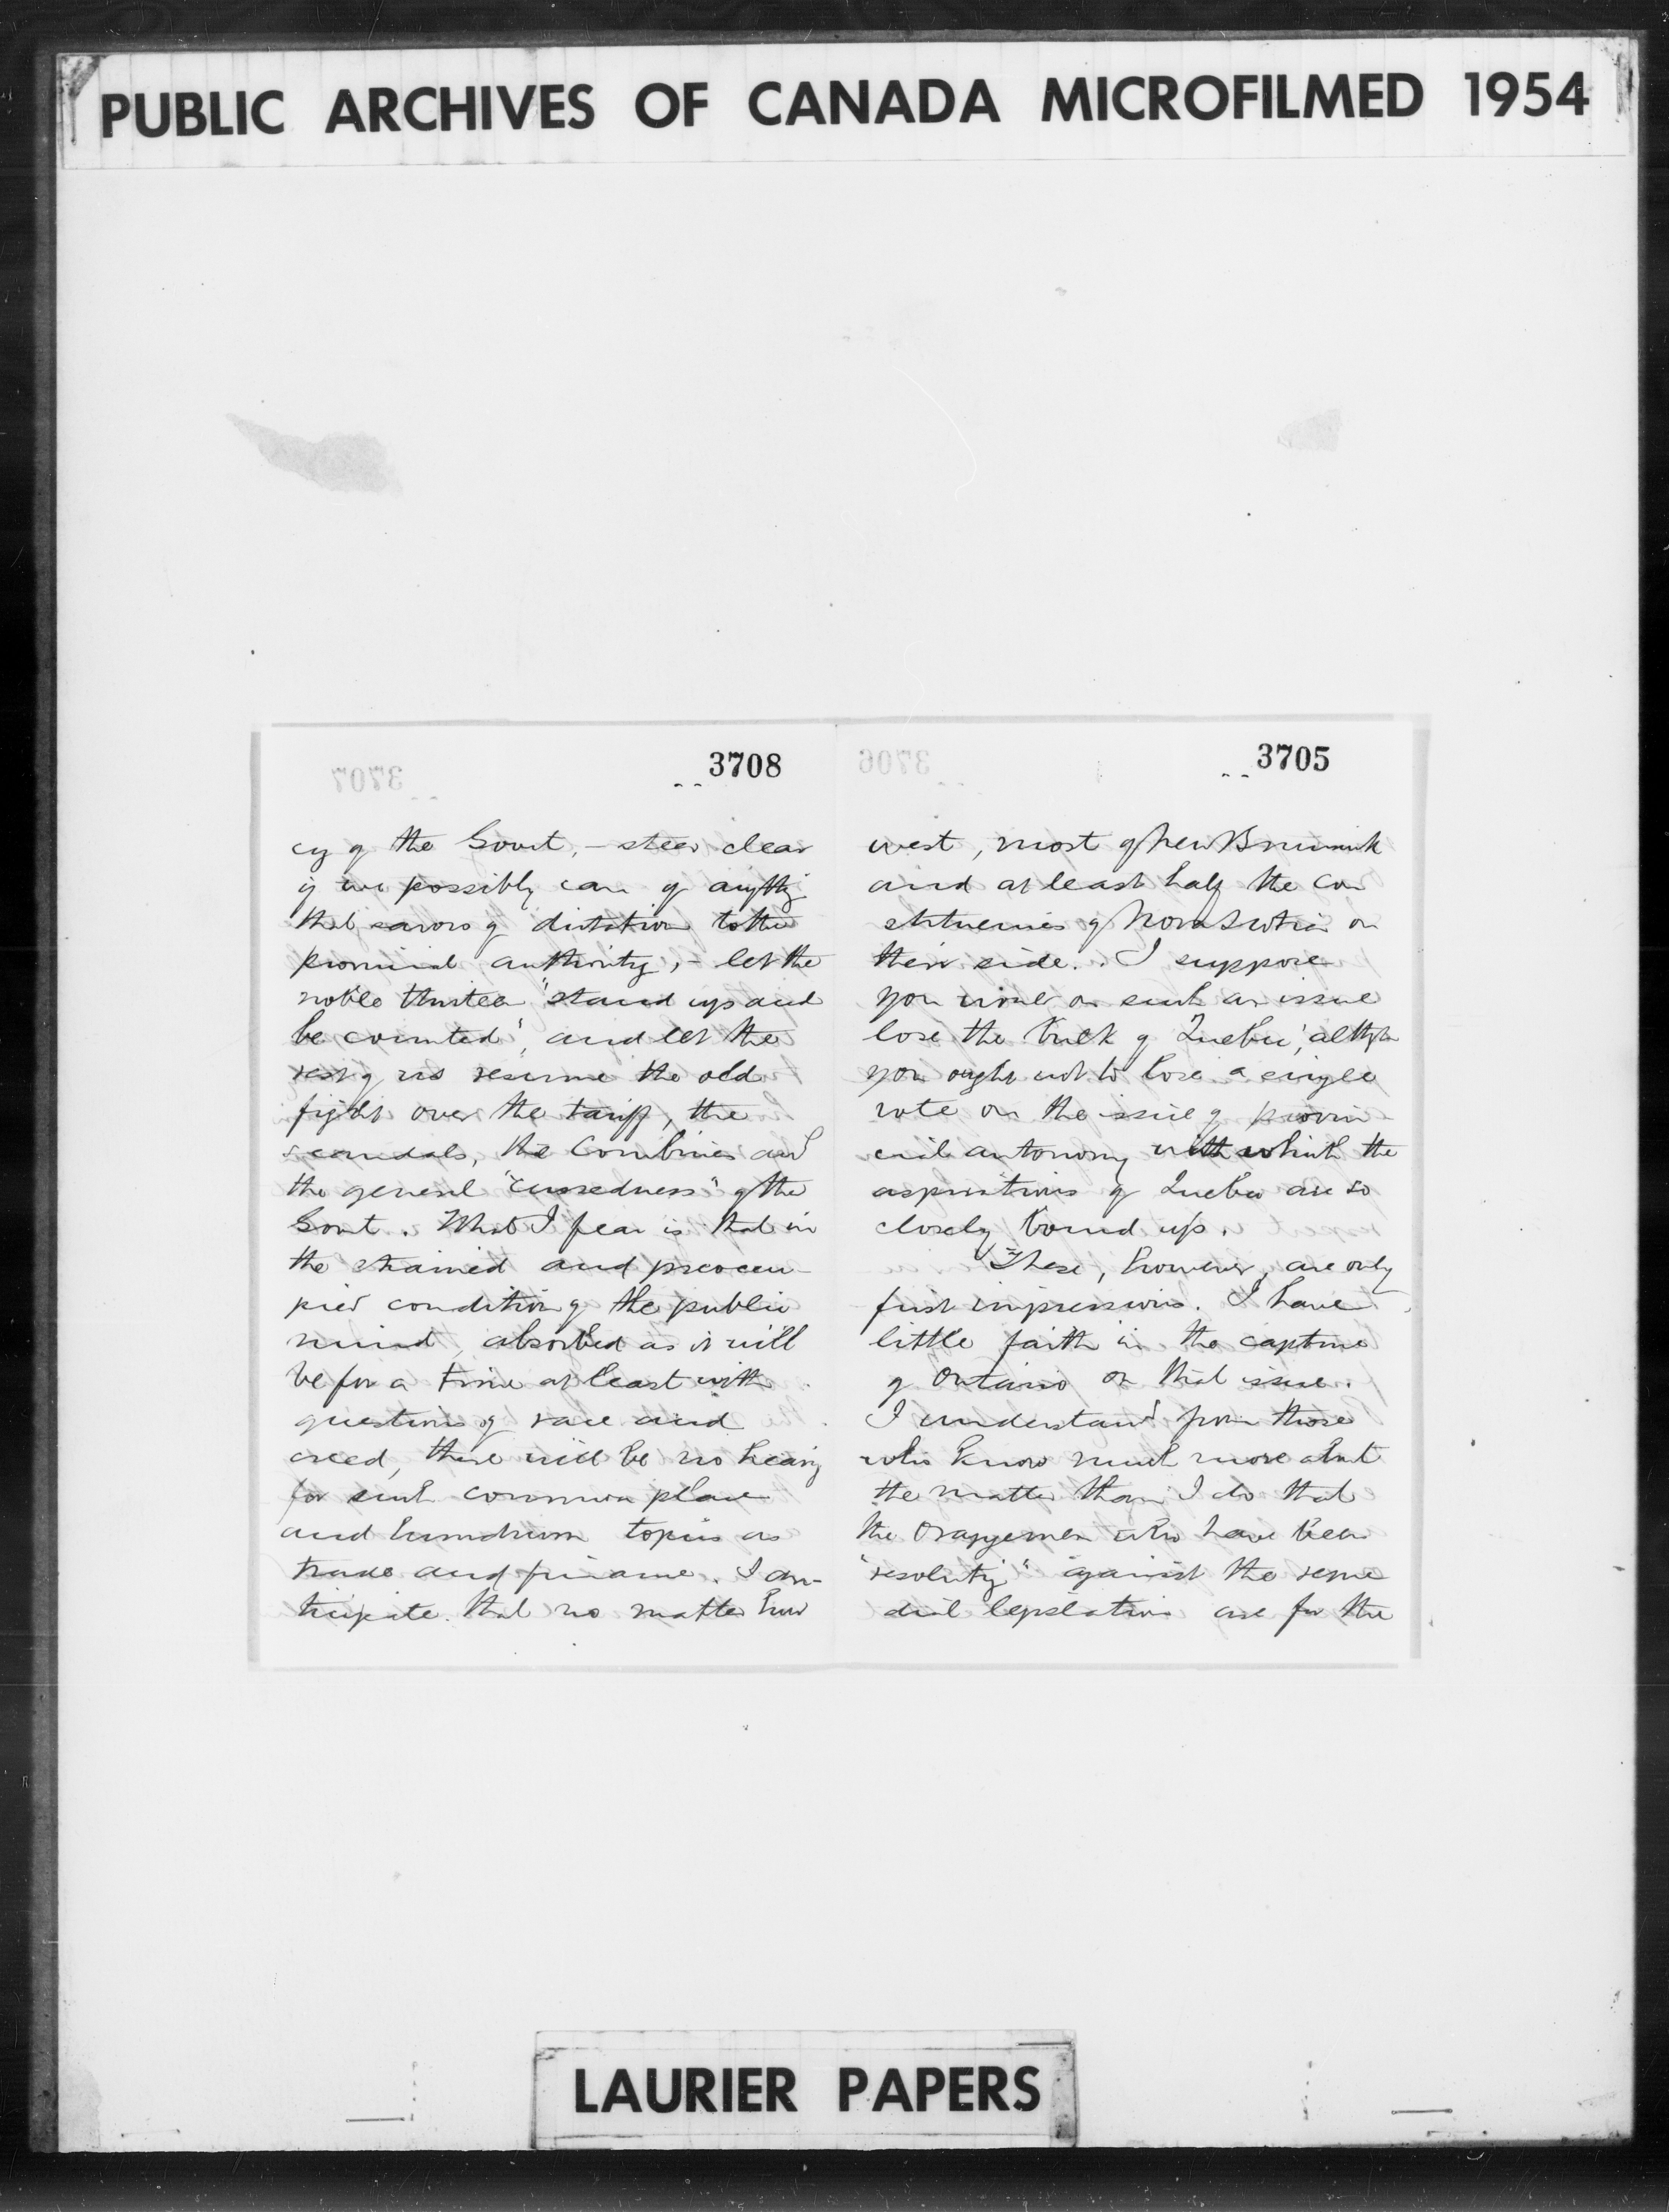 PUBLIC ARCHIVES OF CANADA MICROFILMED 1954
3708
cy of the Govt, – steer clear
if we possibly can of anythg
that savors of dictation to the
provincial authority, – let the
noble thirteen "stand up and
be counted", and let the
rest of us resume the old
fight over the tariff, the
scandals, the Combines and
the general "cussedness" of the
Govt. What I fear is that in
the strained and preoccu-
pied condition of the public
mind, absorbed as it will
be for a time at least with
questions of race and
creed, there will be no hearing
for such common place
and humdrum topics as
trade and finance. I an-
ticipate that no matter how
3705
west, most of New Brunswick
and at least half the con
stituencies of Nova Scotia on
their side. I suppose
you would on such an issue
lose the bulk of Quebec, altho
you ought not to lose a single
vote on the issue of provin-
cial autonomy with which the
aspirations of Quebec are so
closely bound up.
These, however, are only
first impressions. I have
little faith in the capture
of Ontario on that issue.
I understand from those
who know much more about
the matter than I do that
the Orangemen who have been
"resoluting" against the reme
dial legislation are for the
LAURIER PAPERS